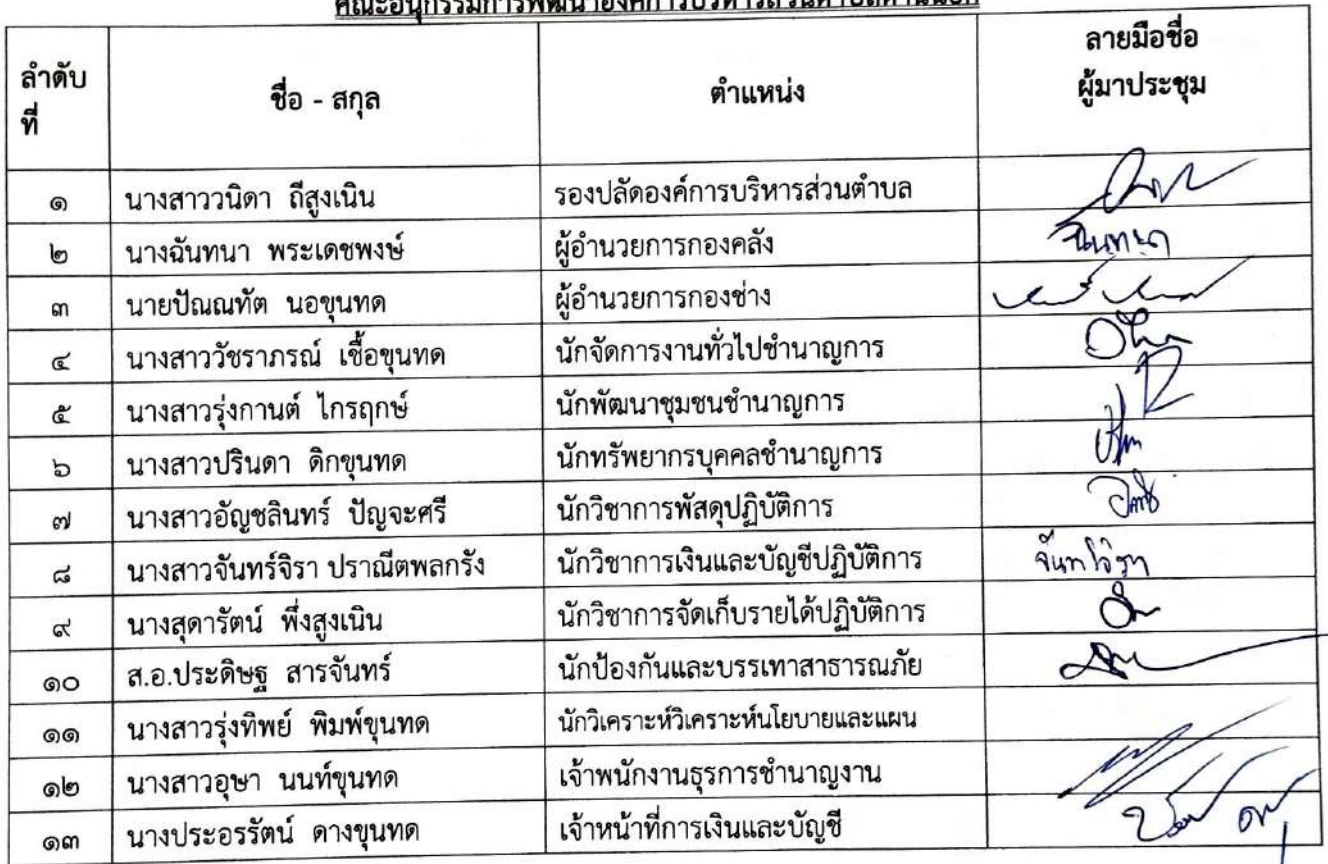 คณะอนุกรรมการพัฒนาองค์การบริหารส่วนตำบลด่านนอก
ลำดับที่ ชื่อ - สกุล ตำแหน่ง ลายมือชื่อ
ผู้มาประชุม
๑ นางสาววนิดา ถีสูงเนิน รองปลัดองค์การบริหารส่วนตำบล
๒ นางฉันทนา พระเดชพงษ์ ผู้อำนวยการกองคลัง ฉันทนา
๓ นายปัณณทัต นอขุนทด ผู้อำนวยการกองช่าง
๔ นางสาววัชราภรณ์ เชื้อขุนทด นักจัดการงานทั่วไปชำนาญการ
๕ นางสาวรุ่งกานต์ ไกรฤกษ์ นักพัฒนาชุมชนชำนาญการ
๖ นางสาวปรินดา ดิกขุนทด นักทรัพยากรบุคคลชำนาญการ
๗ นางสาวอัญชลินทร์ ปัญจะศรี นักวิชาการพัสดุปฏิบัติการ
๘ นางสาวจันทร์จิรา ปราณีตพลกรัง นักวิชาการเงินและบัญชีปฏิบัติการ จันทร์จิรา
๙ นางสุดารัตน์ พึ่งสูงเนิน นักวิชาการจัดเก็บรายได้ปฏิบัติการ
๑๐ ส.อ.ประดิษฐ สารจันทร์ นักป้องกันและบรรเทาสาธารณภัย
๑๑ นางสาวรุ่งทิพย์ พิมพ์ขุนทด นักวิเคราะห์วิเคราะห์นโยบายและแผน
๑๒ นางสาวอุษา นนท์ขุนทด เจ้าพนักงานธุรการชำนาญงาน
๑๓ นางประอรรัตน์ ดางขุนทด เจ้าหน้าที่การเงินและบัญชี